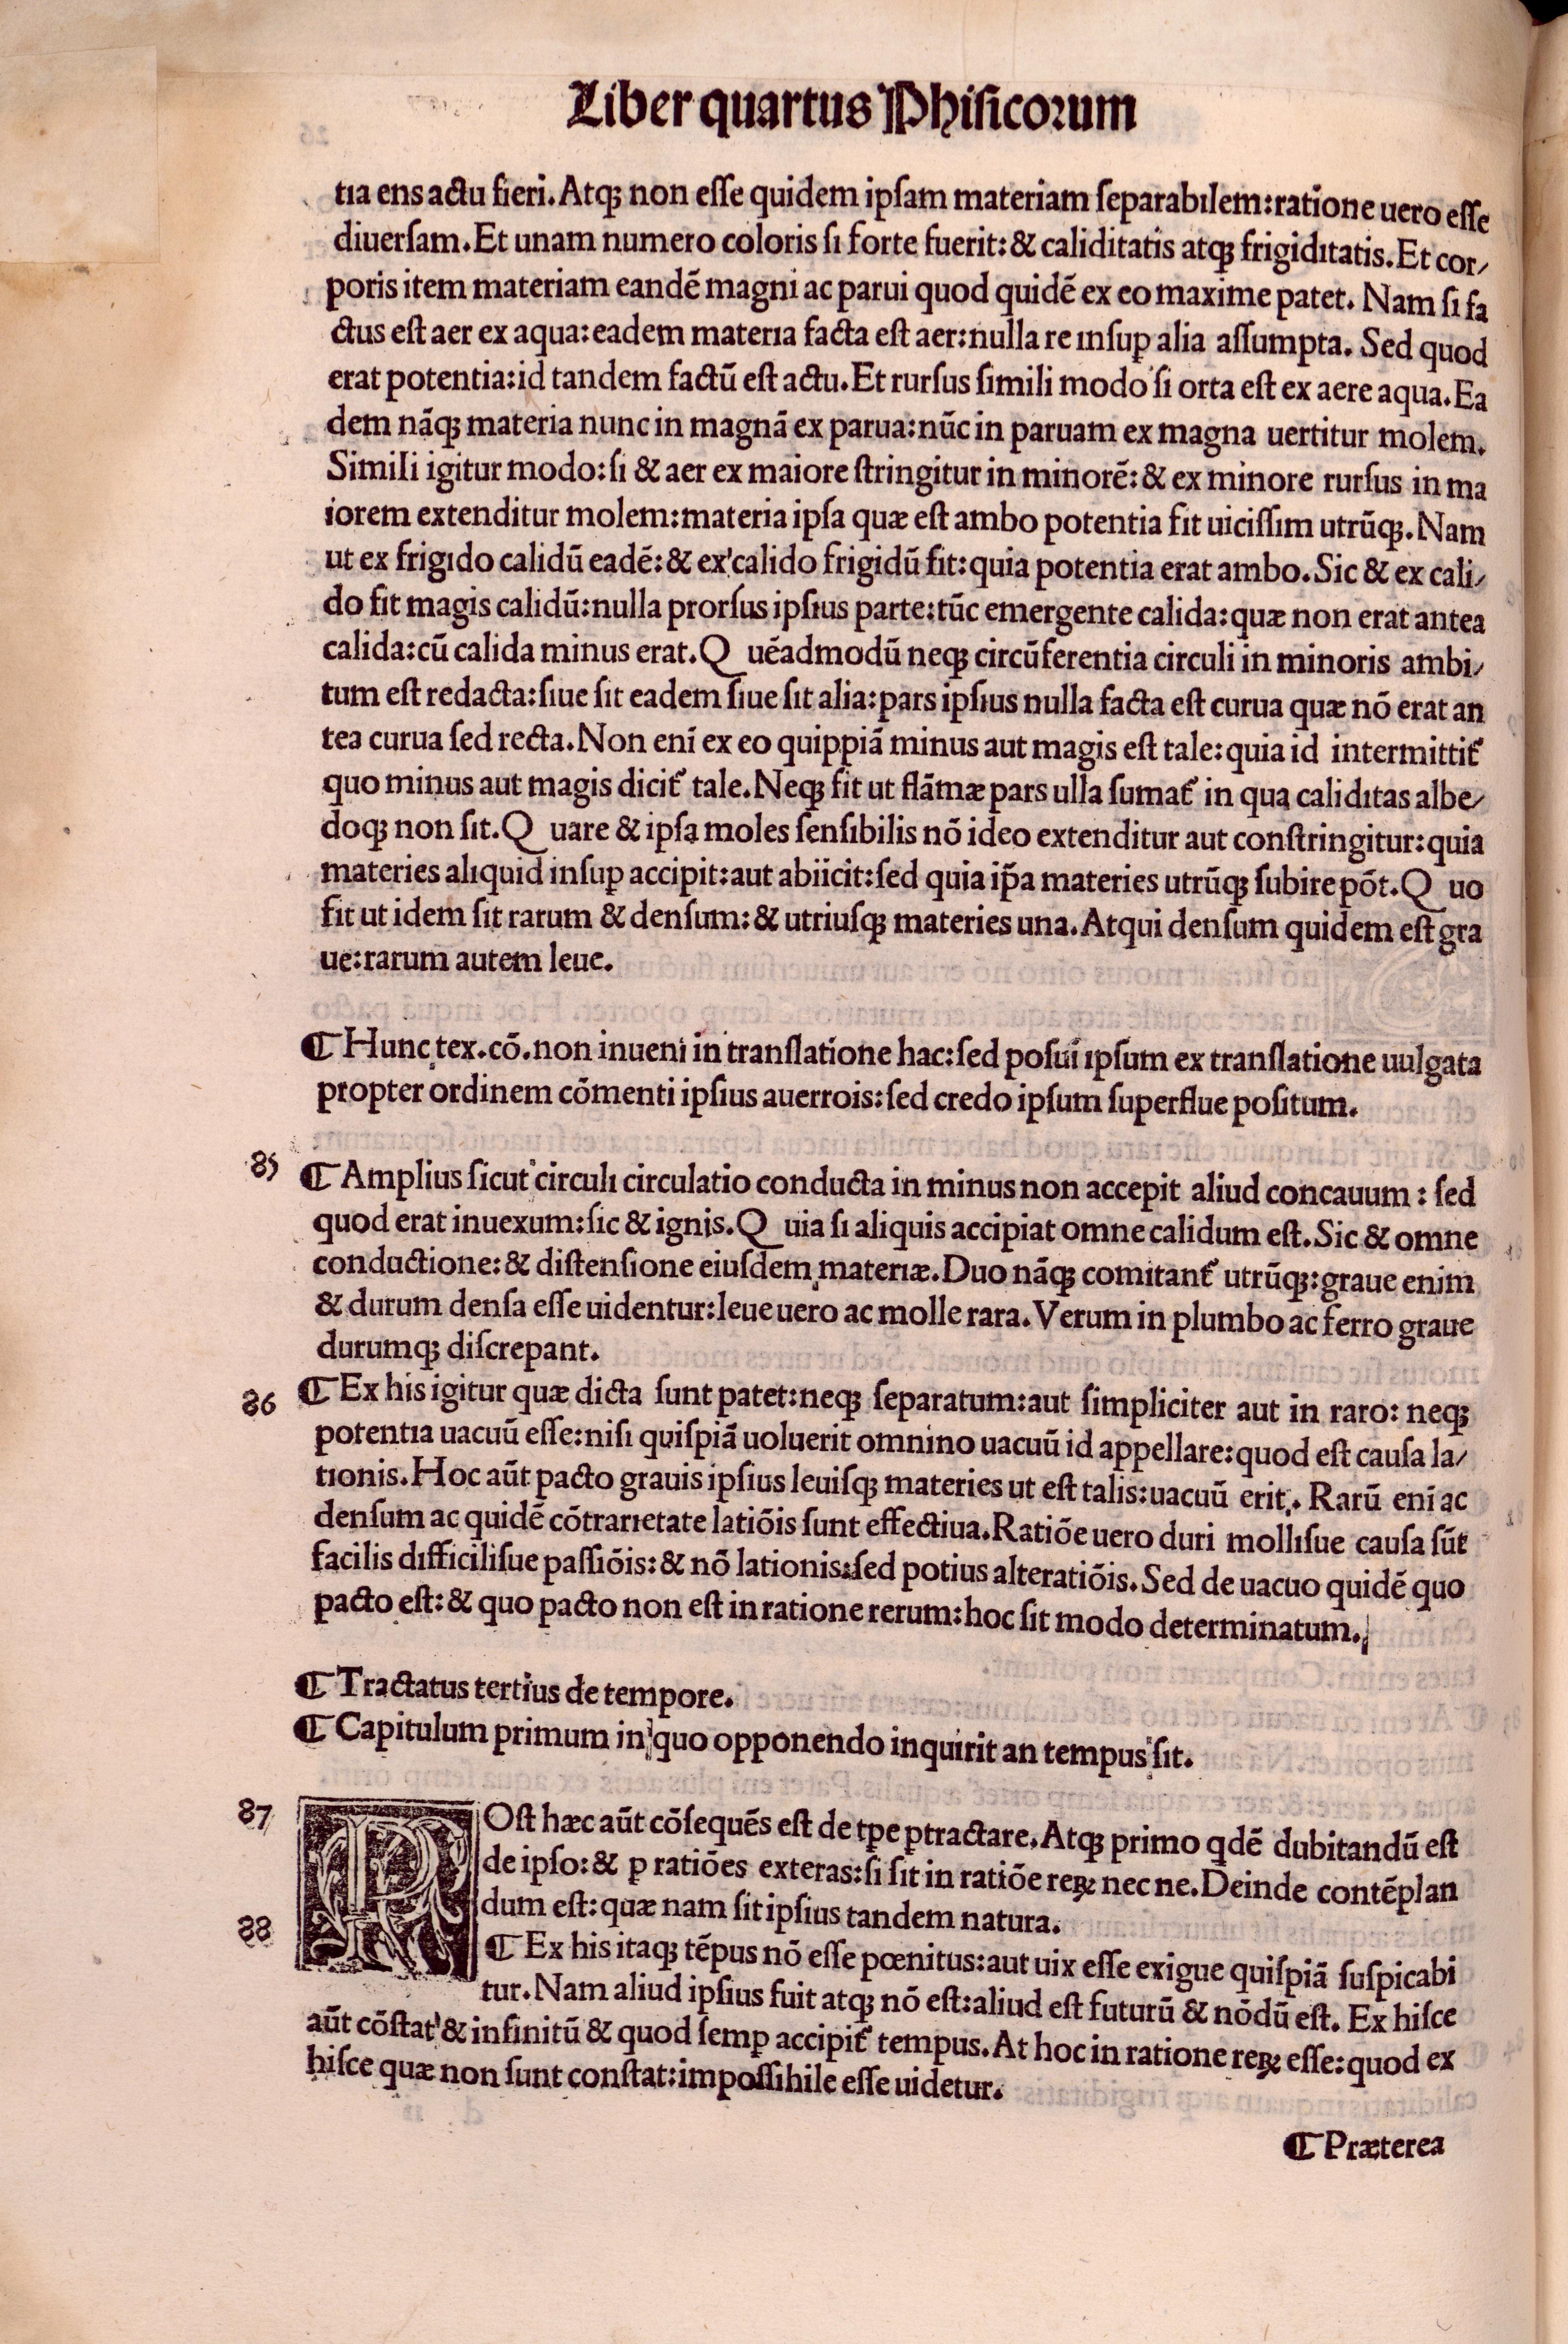 Liber quartus Phisicorum
tia ens actu fieri. Atq; non esse quidem ipsam materiam separabilem: ratione uero esse
diuersam. Et unam numero coloris si forte fuerit: & caliditatis atq; frigiditatis. Et cor/
poris item materiam eandē magni ac parui quod quidē ex eo maxime patet. Nam si fa
ctus est aer ex aqua: eadem materia facta est aer: nulla re insuꝑ alia assumpta. Sed quod
erat potentia: id tandem factū est actu. Et rursus simili modo si orta est ex aere aqua. Ea
dem nāq; materia nunc in magnā ex parua: nūc in paruam ex magna uertitur molem.
Simili igitur modo: si & aer ex maiore stringitur in minorē: & ex minore rursus in ma
iorem extenditur molem: materia ipsa quæ est ambo potentia fit uicissim utrūq;. Nam
ut ex frigido calidū eadē: & ex calido frigidū fit: quia potentia erat ambo. Sic & ex cali/
do fit magis calidū: nulla prorsus ipsius parte: tūc emergente calida: quæ non erat antea
calida: cū calida minus erat. Q uēadmodū neq; circūferentia circuli in minoris ambi/
tum est redacta: siue sit eadem siue sit alia: pars ipsius nulla facta est curua quæ nō erat an
tea curua sed recta. Non enī ex eo quippiā minus aut magis est tale: quia id intermittit᷑
quo minus aut magis dicit᷑ tale. Neq; fit ut flāmæ pars ulla sumat᷑ in qua caliditas albe/
doq; non sit. Q uare & ipsa moles sensibilis nō ideo extenditur aut constringitur: quia
materies aliquid insuꝑ accipit: aut abiicit: sed quia ip̄a materies utrūq; subire pōt. Q uo
fit ut idem sit rarum & densum: & utriusq; materies una. Atqui densum quidem est gra
ue: rarum autem leue.
¶ Hunc tex. cō. non inueni in translatione hac: sed posui ipsum ex translatione uulgata
propter ordinem cōmenti ipsius auerrois: sed credo ipsum superflue positum.
85 ¶ Amplius sicut circuli circulatio conducta in minus non accepit aliud concauum : sed
quod erat inuexum: sic & ignis. Q uia si aliquis accipiat omne calidum est. Sic & omne
conductione: & distensione eiusdem materiæ. Duo nāq; comitant᷑ utrūq;: graue enim
& durum densa esse uidentur: leue uero ac molle rara. Verum in plumbo ac ferro graue
durumq; discrepant.
86 ¶ Ex his igitur quæ dicta sunt patet: neq; separatum: aut simpliciter aut in raro: neq;
potentia uacuū esse: nisi quispiā uoluerit omnino uacuū id appellare: quod est causa la/
tionis. Hoc aūt pacto grauis ipsius leuisq; materies ut est talis: uacuū erit. Rarū enī ac
densum ac quidē cōtrarietate latiōis sunt effectiua. Ratiōe uero duri mollisue causa sūt
facilis difficilisue passiōis: & nō lationis: sed potius alteratiōis. Sed de uacuo quidē quo
pacto est: & quo pacto non est in ratione rerum: hoc sit modo determinatum.
¶ Tractatus tertius de tempore.
¶ Capitulum primum in quo opponendo inquirit an tempus sit.
87 POst hæc aūt cōsequēs est de tꝑe ꝑtractare. Atq; primo qdē dubitandū est
de ipso: & ꝑ ratiōes exteras: si sit in ratiōe reꝝ nec ne. Deinde contēplan
dum est: quæ nam sit ipsius tandem natura.
88 ¶ Ex his itaq; tēpus nō esse pœnitus: aut uix esse exigue quispiā suspicabi
tur. Nam aliud ipsius fuit atq; nō est: aliud est futurū & nōdū est. Ex hisce
aūt cōstat & infinitū & quod semꝑ accipit᷑ tempus. At hoc in ratione reꝝ esse: quod ex
hisce quæ non sunt constat: impossihile esse uidetur.
¶ Præterea